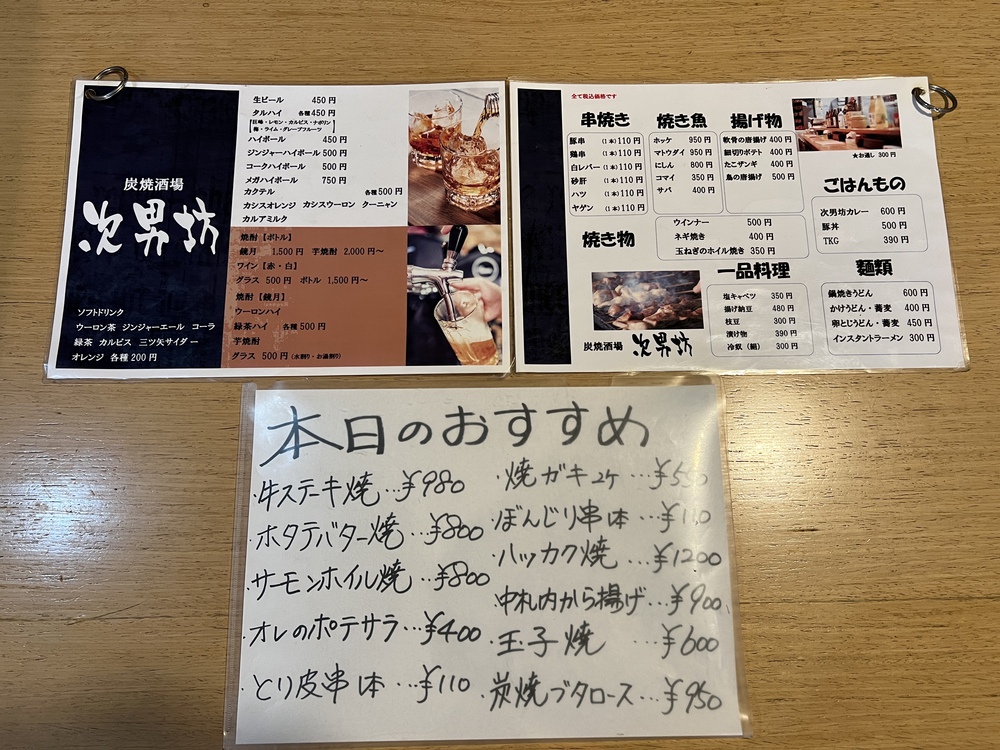 炭焼酒場
次男坊
ソフトドリンク
ウーロン茶 ジンジャーエール コーラ
緑茶 カルピス 三ツ矢サイダー
オレンジ 各種200円
生ビール 450円
タルハイ 各種450円
巨峰・レモン・カルピス・ナポリン
梅・ライム・グレープフルーツ
ハイボール 450円
ジンジャーハイボール 500円
コークハイボール 500円
メガハイボール 750円
カクテル 各種500円
カシスオレンジ カシスウーロン クーニャン
カルアミルク
焼酎【ボトル】
鏡月 1,500円 芋焼酎 2,000円～
ワイン【赤・白】
グラス 500円 ボトル 1,500円～
焼酎【鏡月】
ウーロンハイ
緑茶ハイ 各種500円
芋焼酎
グラス 500円（水割り・お湯割り）
全て税込価格です
串焼き
豚串 （1本）110円
鶏串 （1本）110円
白レバー（1本）110円
砂肝 （1本）110円
ハツ （1本）110円
ヤゲン （1本）110円
焼き魚
ホッケ 950円
マトウダイ 950円
にしん 800円
コマイ 350円
サバ 400円
揚げ物
軟骨の唐揚げ 400円
細切りポテト 400円
たこザンギ 400円
鳥の唐揚げ 500円
★お通し 300円
焼き物
ウインナー 500円
ネギ焼き 400円
玉ねぎのホイル焼き 350円
ごはんもの
次男坊カレー 600円
豚丼 500円
TKG 390円
炭焼酒場 次男坊
一品料理
塩キャベツ 350円
揚げ納豆 480円
枝豆 300円
漬け物 390円
冷奴（絹） 300円
麺類
鍋焼きうどん 600円
かけうどん・蕎麦 400円
卵とじうどん・蕎麦 450円
インスタントラーメン 300円
本日のおすすめ
・牛ステーキ焼…¥980
・ホタテバター焼…¥800
・サーモンホイル焼…¥800
・オレのポテサラ…¥400
・とり皮串1本…¥110
・焼ガキ2ケ…¥550
・ぼんじり串1本…¥110
・ハッカク焼…¥1200
・中札内から揚げ…¥900
・玉子焼…¥600
・炭焼ブタロース…¥950